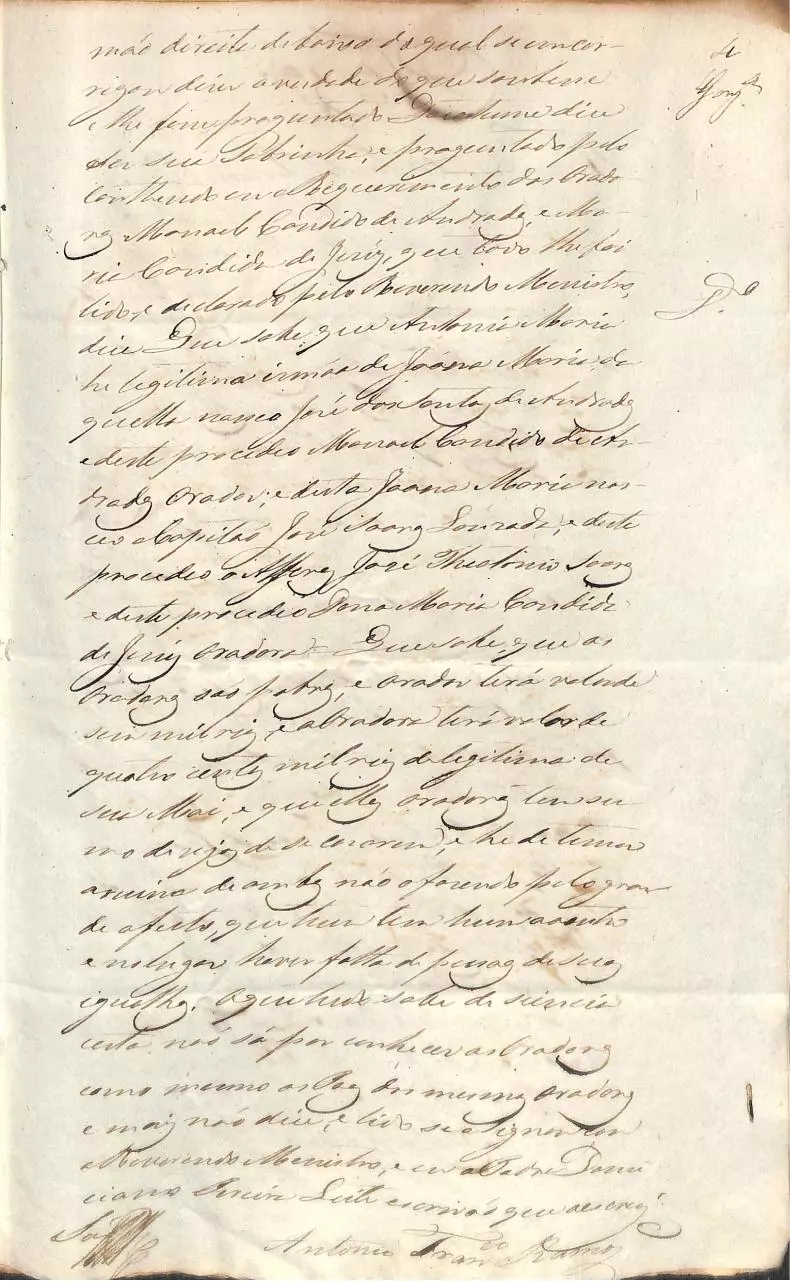 mão direita debaixo do qual se encar-
regou dizer a verdade do que soubesse
e lhe fosse preguntado Do costume dice
ser seu Sobrinho, e preguntado pelo
conthendo em o Requerimento dos Orado-
res Manoel Candido de Andrade, e Ma-
ria Candida de Jesus, que todo lhe foi
lido, e declarado pelo Reverendo Menistro,
dice Que sabe, que Antonia Maria
he legitima irmãa de Joana Maria, da
quella nasceo José dos Santos de Andrade
e deste procedeo Manoel Candido de An-
drade Orador; e desta Joana Maria nas-
ceo o Capitaó José Soares Lourada, e deste
procedeo o Alferes José Theotonio Soares
e deste procedeo Dona Maria Candida
de Jesus Oradora = Que sabe, que os
Oradores saó pobres, e orador terá valor de
mil reis, e a Oradora terá valor de
quatro centos mil reis de legitima de
sua Mai, e que elles oradores tem su-
mo desejo de se cazarem, e he de temer
a ruina de ambos não o fazendo pelo gran
de afecto, que hum tem hum a outro
e no lugar haver falta de pesoas de sua
igualha. O que tudo sabe de siencia
certa, naó só por conhecer os Oradores
como mesmo os Pais dos mesmos Oradores
e mais naó dice, e lido se asignou com
o Reverendo Menistro, e eu o Padre Domi
ciano Pereira Leite escrivaó que o escrevi.
Antonio Fran.co Ramos